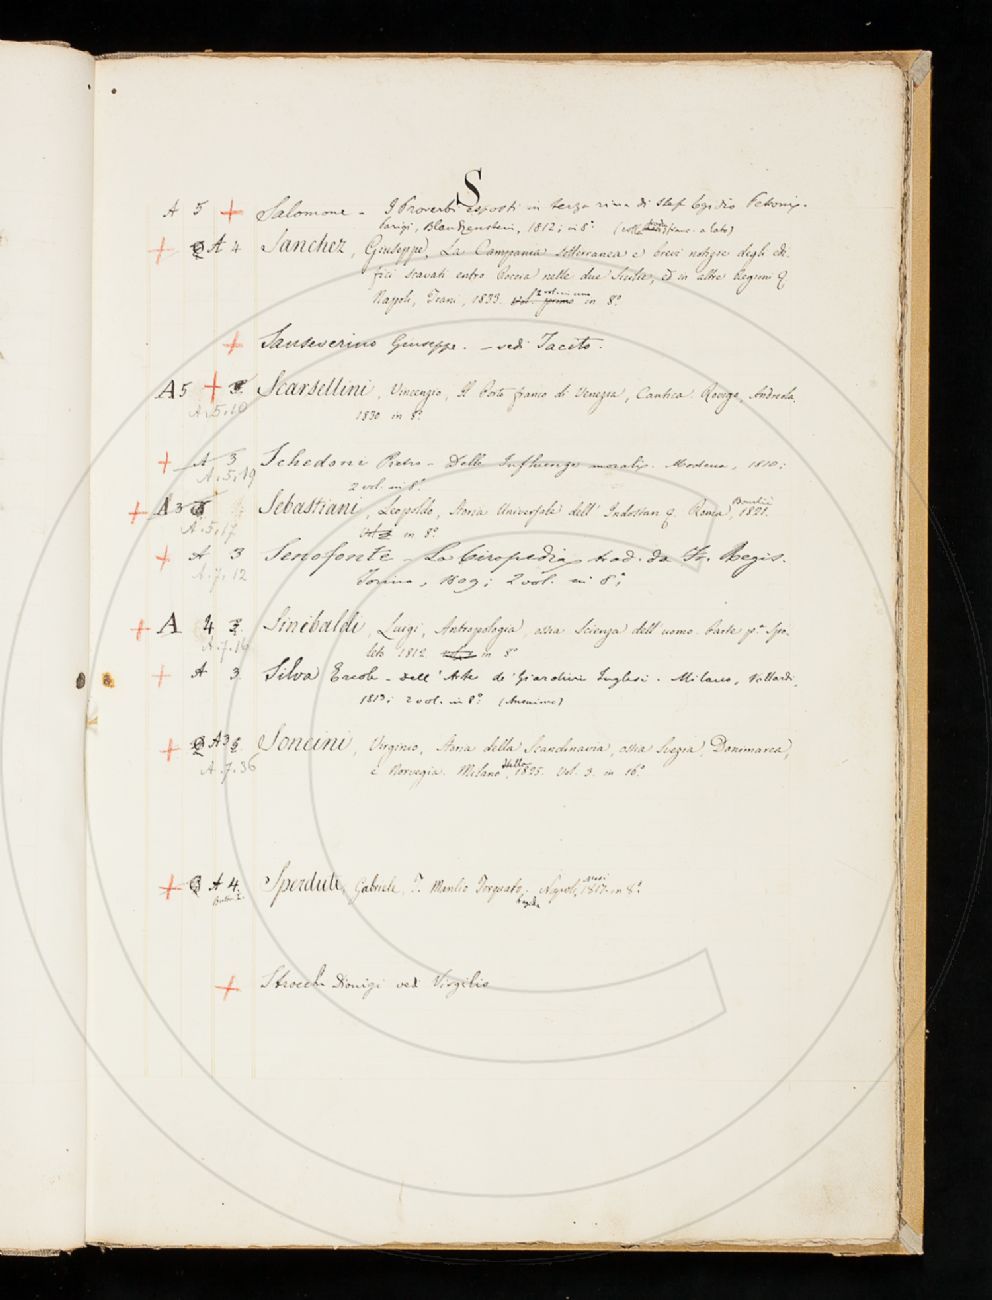 S
A 5 + Salomone - I Proverbi esposti in terza rima di Stef. Egidio Petronj.
Parigi, Blankenstein, 1812; in 8°. (col a lato)
+ A 4 Sanchez, Giuseppe, La Campania sotterranea e brevi notizie degli edi-
fizi scavati entro Roccia nelle due Sicilie, ed in altre Regioni
Napoli, Trani, 1833. 2 vol. in uno in 8°
+ Sanseverino Giuseppe. - vedi Tacito.
A 5 + 3. Scarsellini, Vincenzo, Il Porto franco di Venezia, Cantica. Rovigo, Andreola.
A.5.10 1830 in 8°
+ A 3 Schedoni Pietro - Delle Influenze morali. Modena, 1810;
A.5.19 2 vol. in 8°.
+ A 3 Sebastiani, Leopoldo, Storia Universale dell' Indostan Roma, 1821.
A.5.17 in 8°
+ A 3 Senofonte - La Ciropedia, trad. da Fr. Regis.
A.7.12 Torino, 1809; 2 vol. in 8°;
+ A 4 Sinibaldi, Luigi, Antropologia, ossia Scienza dell' uomo. Parte p.a Spo-
A.7.16 leto 1812. in 8°
+ A 3. Silva Ercole - Dell' Arte de' Giardini Inglesi. - Milano, Vallardi,
1813; 2 vol. in 8° (Anonimo)
+ A 3 Soncini, Virginio, Storia della Scandinavia, ossia Svezia, Danimarca,
A.7.36 e Norvegia. Milano, Stella 1825. Vol. 3. in 16°
+ A 4. Sperduti, Gabriele, T. Manlio Torquato, Napoli, 1817. in 8°
+ Strocchi Dionigi vedi Virgilio